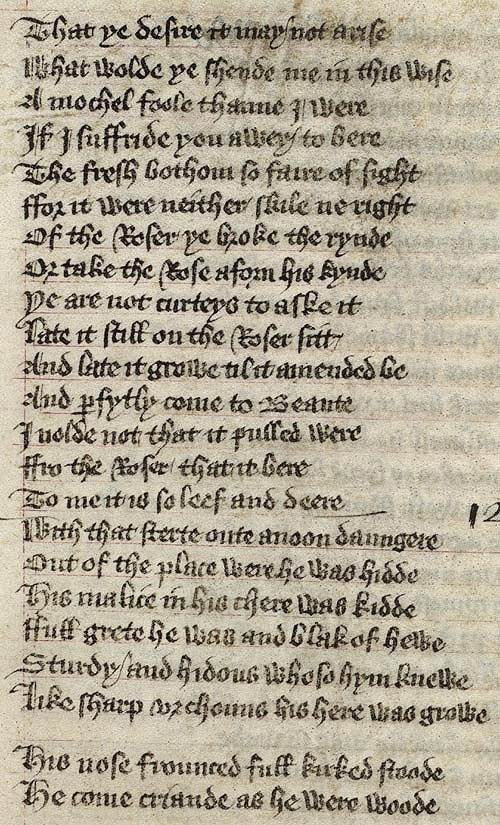 That ye desire it may not arise
What wolde ye shende me in this wise
A mochel foole thanne I were
If I suffride you awey to bere
The fresh bothom so faire of sight
ffor it were neither skile ne right
Of the Roser ye broke the rynde
Or take the Rose aforn his kynde
Ye are not curteys to aske it
Late it still on the Roser sitt
And late it growe til it amended be
And pfytly come to Beaute
I nolde not that it pulled were
ffro the Roser that it bere
To me it is so leef and deere
With that sterte oute anoon daungere
Out of the place were he was hidde
His malice in his chere was kidde
ffull grete he was and blak of hewe
Sturdy and hidous who so hym knewe
Like sharp vrchouns his here was growe
His nose frounced full kirked stoode
He come criande as he were woode
12